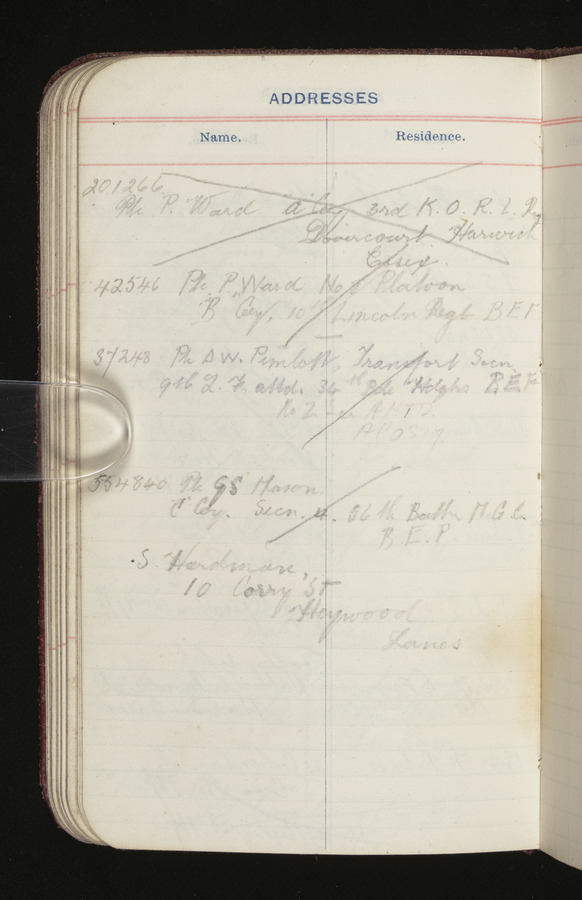 ADDRESSES
Name. Residence.
201266
Pte P. Ward "A" Coy 3rd K. O. R. L. R
Dovercourt Harwich
Essex.
42546 Pte P. Ward No Platoon
B Coy, 10th Lincoln Regt B E F
37248 Pte S W. Pimlott, Transport Secn
9th L. F. attd. Bde Hdqrs B.E.F
No 2
554840 Pte G S Mason
C Coy. Secn. 4. 56th Battn M. G. C.
B. E. F
S. Hardman,
10 Corry St
Heywood
Lancs